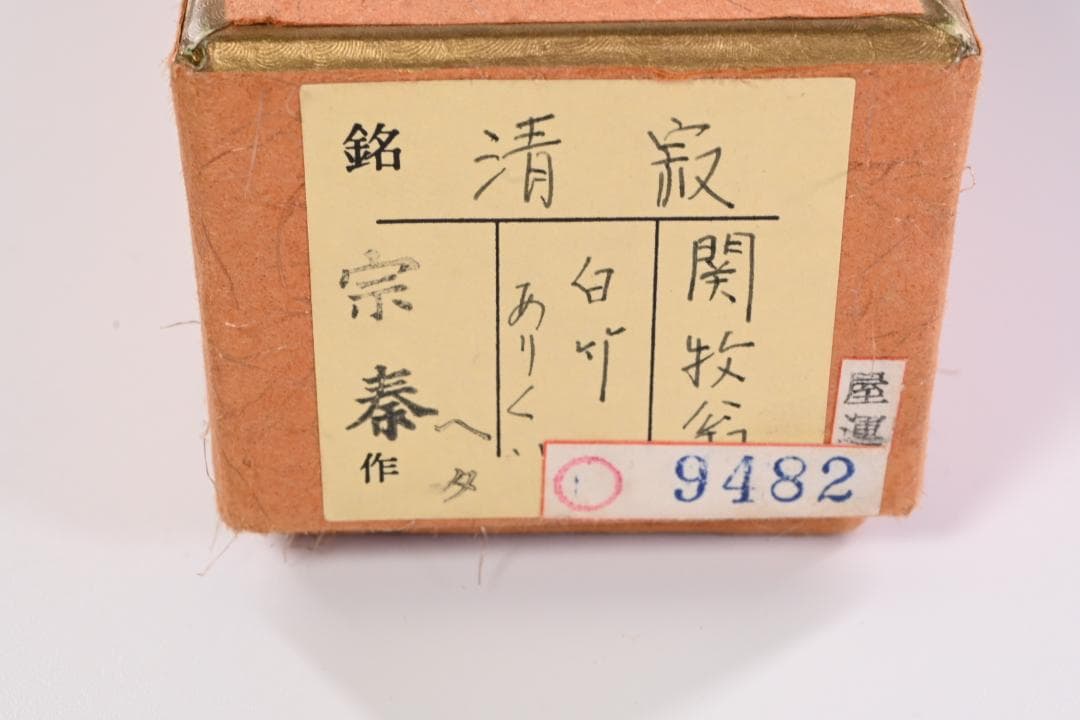 銘 清寂
関牧翁
白竹
ありくい
宗
秦
作
へ
タ
屋
運
9482